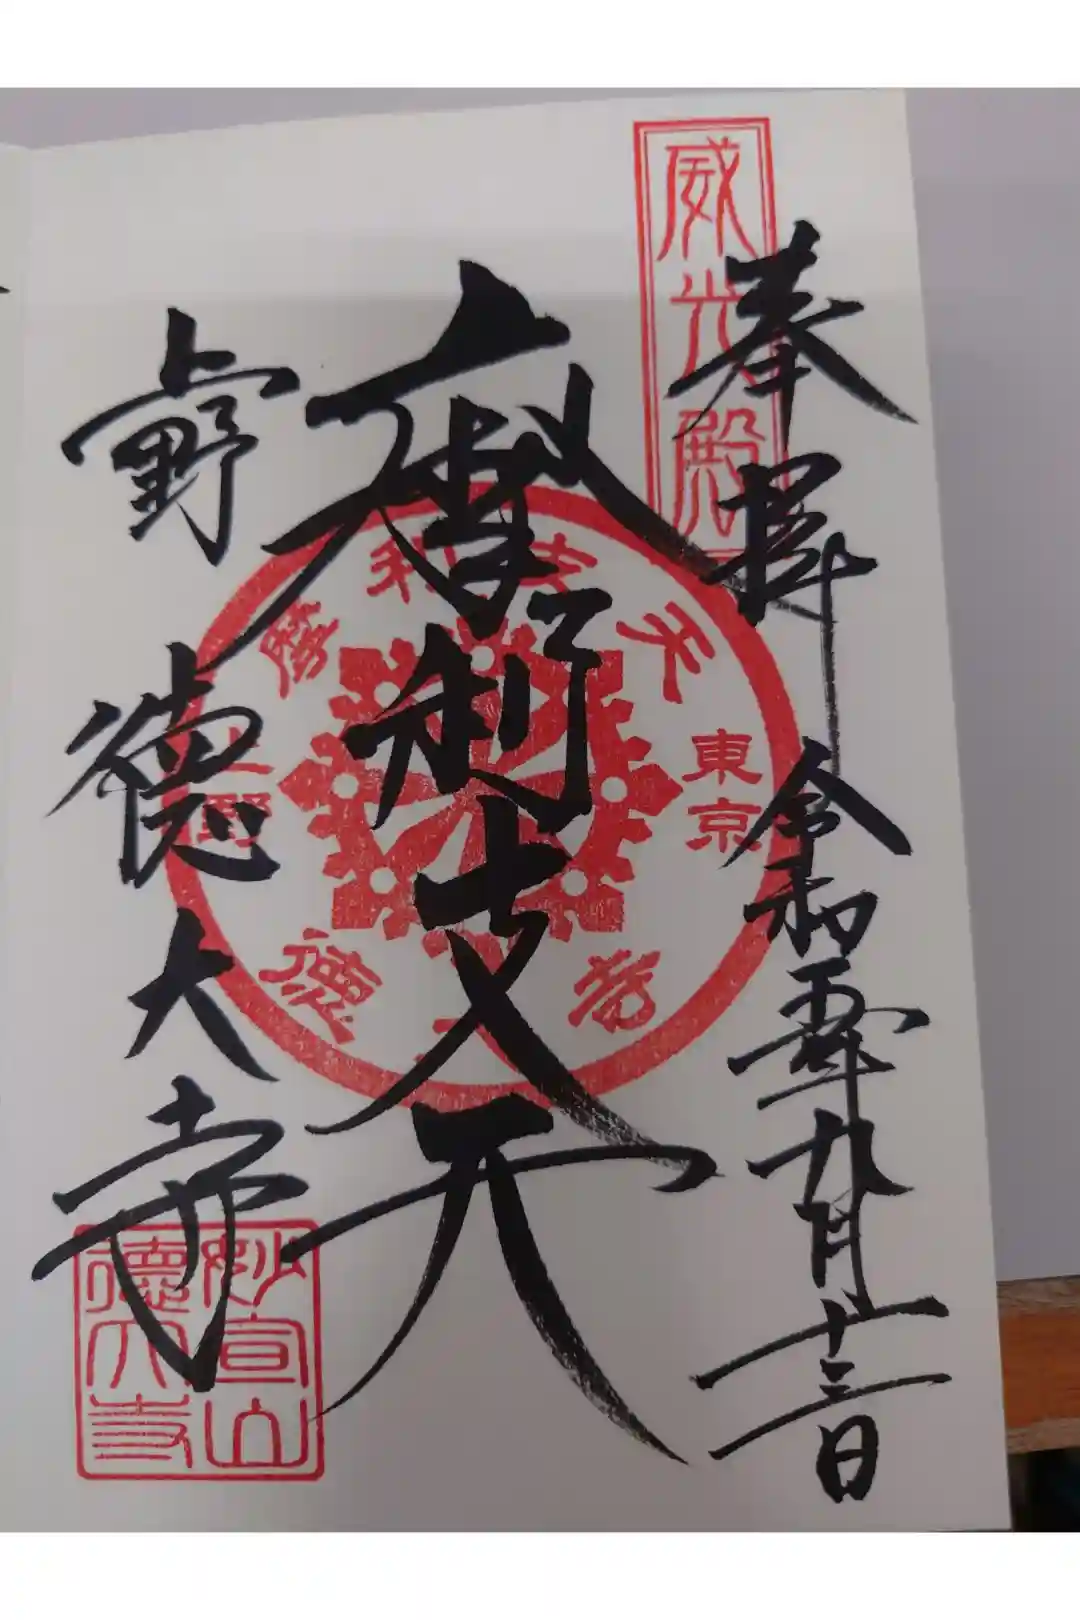 奉拝 令和五年九月廿三日
威光殿
摩利支天
上野 徳大寺
摩利支天
東京
上野
徳大寺
妙宣山
徳大寺